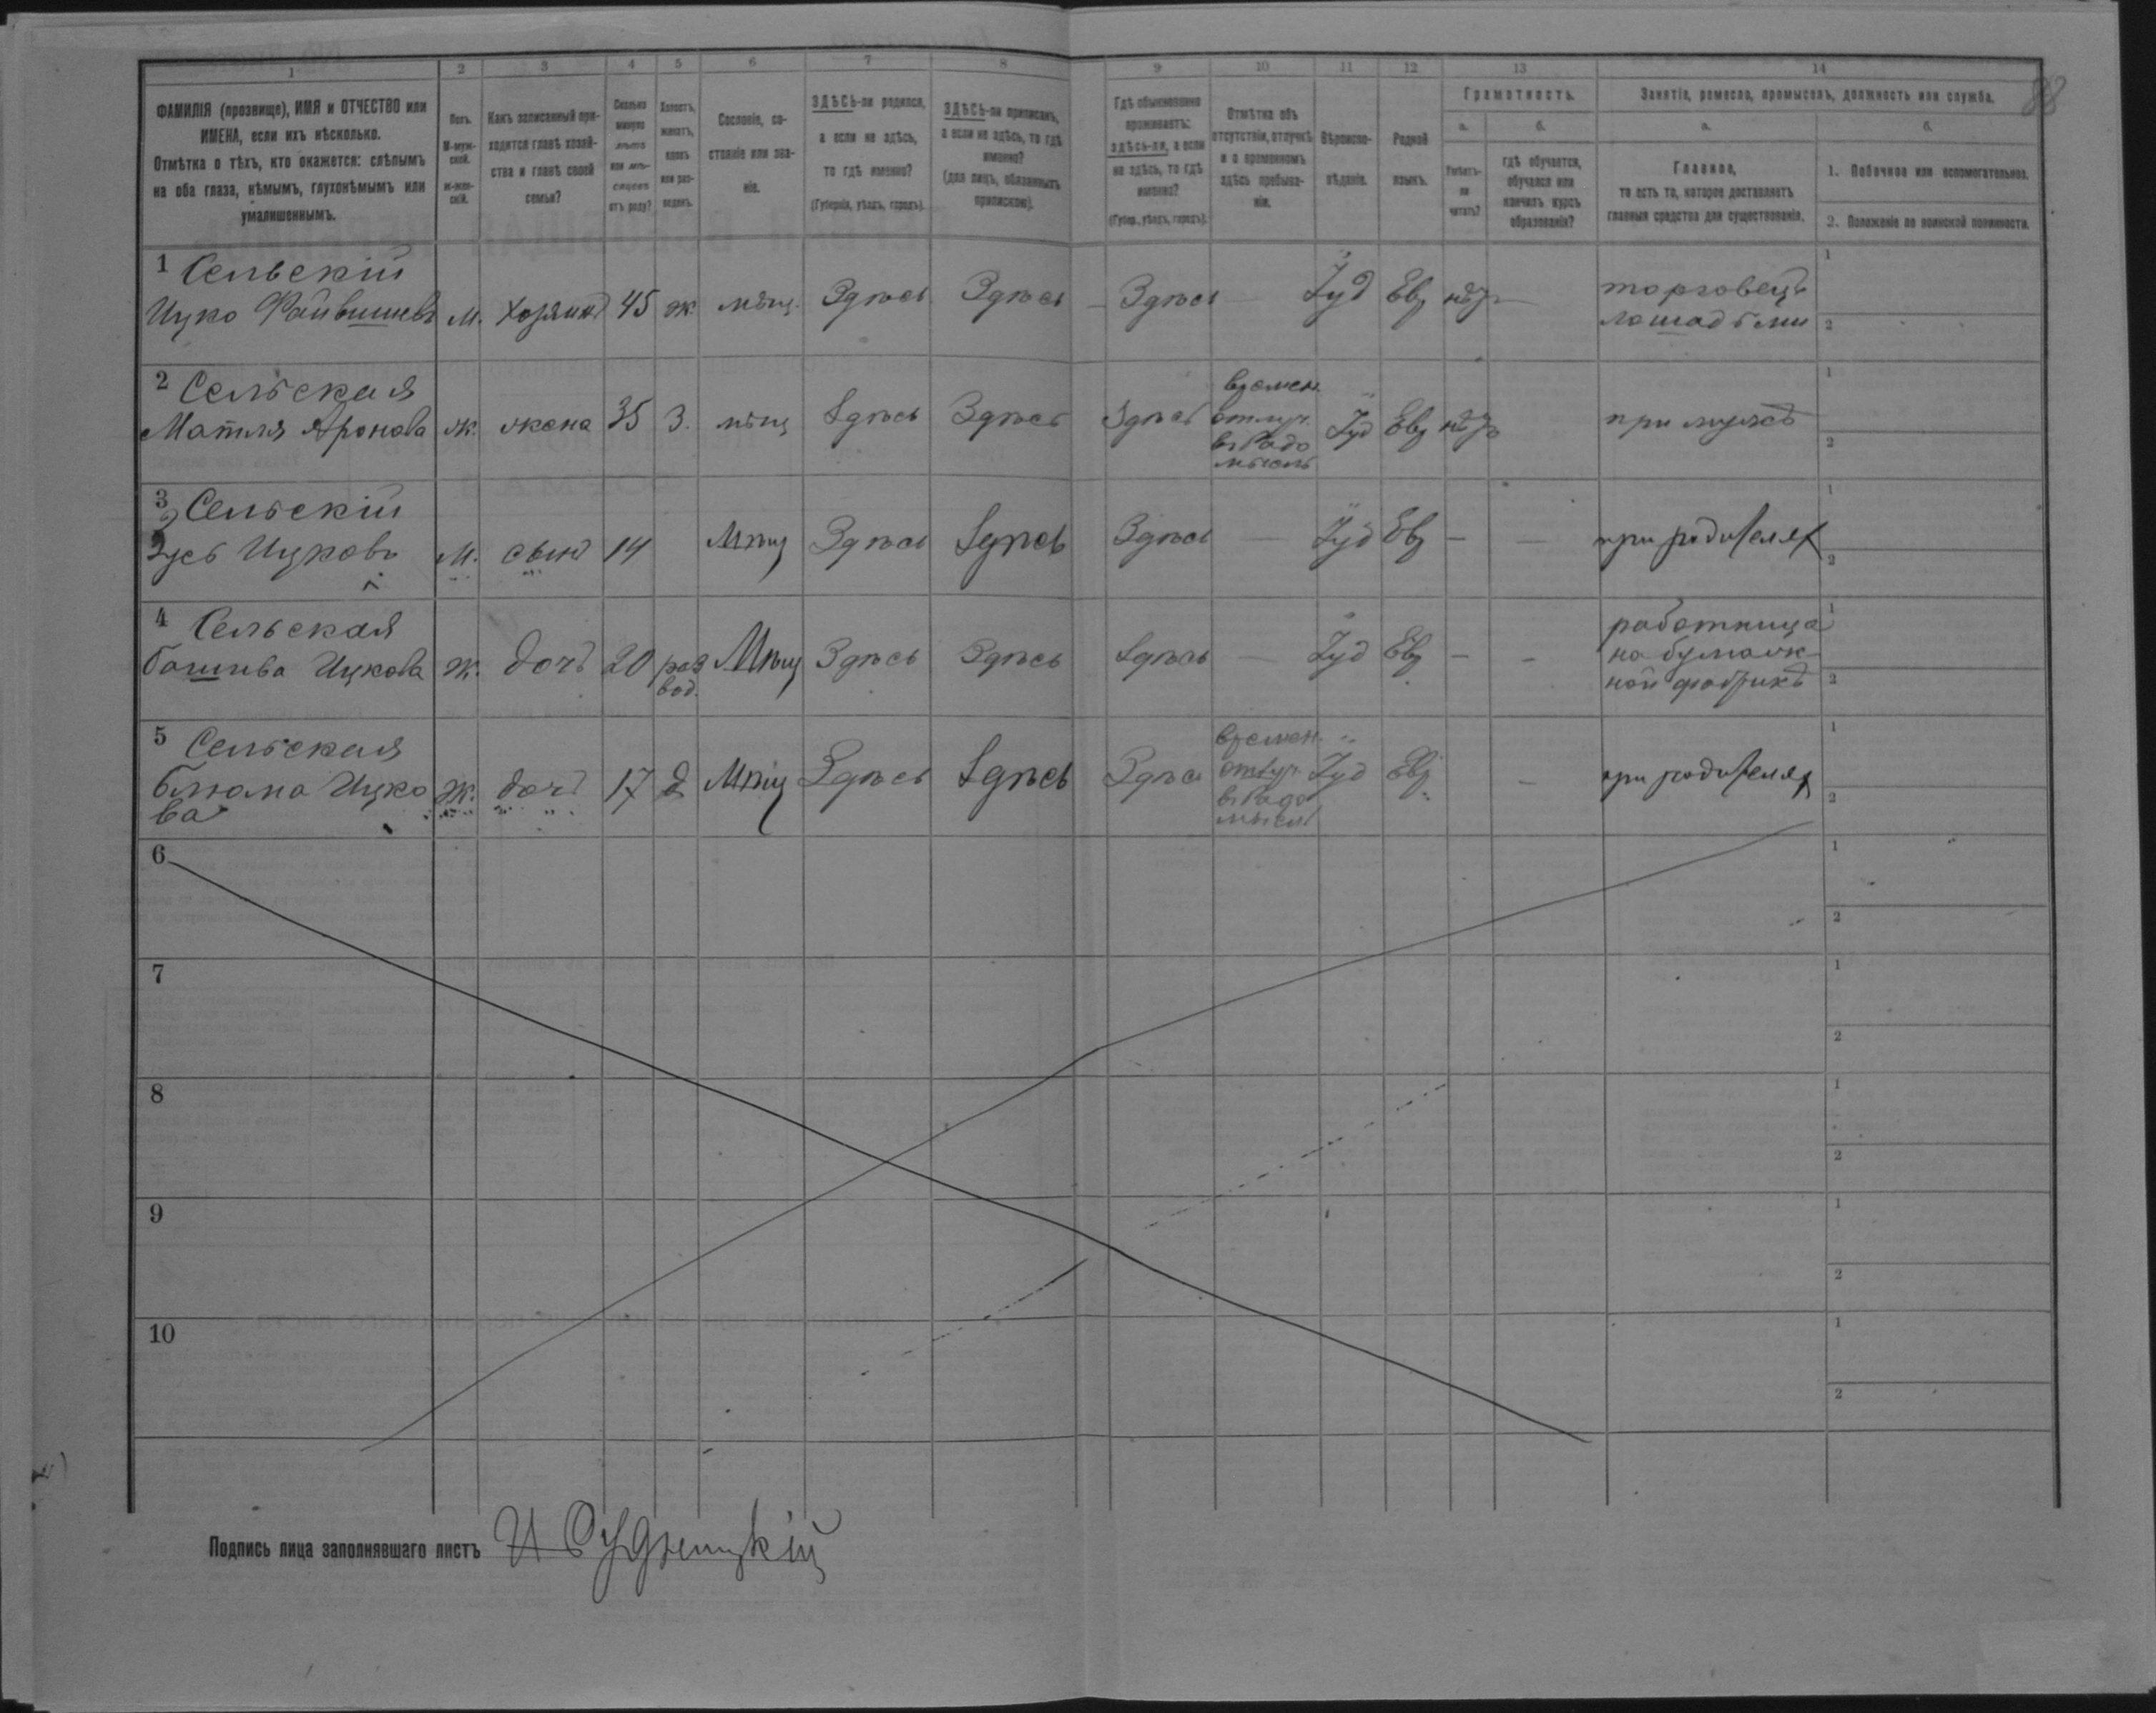 1 2 3 4 5 6 7 8 9 10 11 12 13 14
88
ФАМИЛІЯ (прозвище), ИМЯ и ОТЧЕСТВО или
ИМЕНА, если ихъ нѣсколько.
Отмѣтка о тѣхъ, кто окажется: слѣпымъ
на оба глаза, нѣмымъ, глухонѣмымъ или
умалишеннымъ.
Полъ.
М-муж-
ской.
Ж-жен-
скій.
Какъ записанный при-
ходится главѣ хозяй-
ства и главѣ своей
семьи?
Сколько
минуло
лѣтъ
или мѣ-
сяцевъ
отъ роду?
Холостъ,
женатъ,
вдовъ
или раз-
веденъ.
Сословіе, со-
стояніе или зва-
ніе.
ЗДѢСЬ-ли родился,
а если не здѣсь,
то гдѣ именно?
(Губернія, уѣздъ, городъ).
ЗДѢСЬ-ли приписанъ,
а если не здѣсь, то гдѣ
именно?
(для лицъ, обязанныхъ
припискою).
Гдѣ обыкновенно
проживаетъ:
здѣсь-ли, а если
не здѣсь, то гдѣ
именно?
(Губер., уѣздъ, городъ).
Отмѣтка объ
отсутствіи, отлучкѣ
и о временномъ
здѣсь пребыва-
ніи.
Вѣроиспо-
вѣданіе.
Родной
языкъ.
Грамотность.
а.
Умѣетъ-
ли
читать?
б.
гдѣ обучается,
обучался или
кончилъ курсъ
образованія?
Занятіе, ремесло, промыселъ, должность или служба.
а.
Главное,
то есть то, которое доставляетъ
главныя средства для существованія.
б.
1. Побочное или вспомогательное.
2. Положеніе по воинской повинности.
1 Сельскій
Ицко Файвишевъ м. хозяинъ 45 ж мѣщ. Здѣсь Здѣсь Здѣсь — Іуд Евр нѣтъ — торговецъ
лошадьми
1
2
2 Сельская
Матля Аронова ж. жена 35 З. мѣщ Здѣсь Здѣсь Здѣсь
времен.
отлуч.
въ Радо
мысль
Іуд Евр нѣтъ при мужѣ
1
2
3 Сельскій
Зусь Ицковъ м. сынъ 14 Мѣщ Здѣсь Здѣсь Здѣсь — Іуд Евр — — при родителях
1
2
4 Сельская
Башива Ицкова ж. дочь 20 раз
вод. Мѣщ Здѣсь Здѣсь Здѣсь — Іуд Евр — —
работница
на бумаж-
ной фабрикѣ
1
2
5 Сельская
Блюма Ицко
ва ж. дочь 17 д Мѣщ Здѣсь Здѣсь Здѣсь
времен.
отлуч.
въ Радо
мысль
Іуд Евр — при родителях
1
2
6
1
2
7
1
2
8
1
2
9
1
2
10
1
2
Подпись лица заполнявшаго листъ